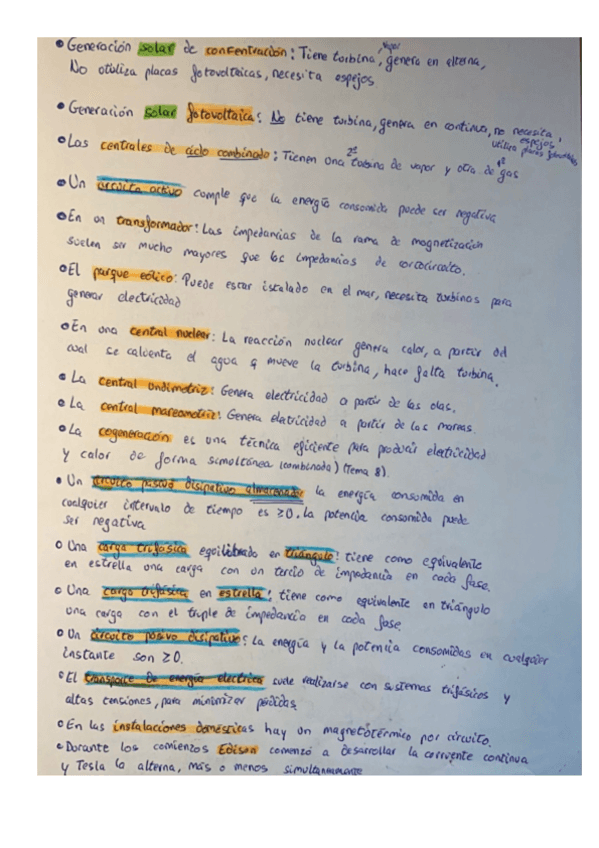 • Generación solar de concentración: Tiene turbina, genera en alterna,
No utiliza placas fotovoltaicas, necesita espejos
• Generación solar fotovoltaica: No tiene turbina, genera en continua, no necesita espejos, utiliza placas
• Las centrales de ciclo combinado: Tienen una turbina de vapor y otra de gas
• Un circuito activo cumple que la energía consumida puede ser negativa
• En un transformador: Las impedancias de la rama de magnetización
suelen ser mucho mayores que las impedancias de cortocircuito.
• El parque eólico: Puede estar istalado en el mar, necesita turbinas para
generar electricidad
• En una central nuclear: La reacción nuclear genera calor, a partir del
cual se calienta el agua q mueve la turbina, hace falta turbina.
• La central undimotriz: Genera electricidad a partir de las olas.
• La central mareomotriz: Genera electricidad a partir de las mareas.
• La cogeneración es una técnica eficiente para producir electricidad
y calor de forma simultánea (combinada) (Tema 8).
• Un circuito pasivo disipativo almacenador la energía consumida en
cualquier intervalo de tiempo es ≥0. La potencia consumida puede
ser negativa
• Una carga trifásica equilibrada en triángulo: tiene como equivalente
en estrella una carga con un tercio de impedancia en cada fase.
• Una carga trifásica en estrella: tiene como equivalente en triángulo
una carga con el triple de impedancia en cada fase.
• Un circuito pasivo disipativo: La energía y la potencia consumidas en cualquier
instante son ≥0.
• El transporte de energía eléctrica suele realizarse con sistemas trifásicos y
altas tensiones, para minimizar pérdidas.
• En las instalaciones domésticas hay un magnetotérmico por circuito.
• Durante los comienzos Edison comenzó a desarrollar la corriente continua
y Tesla la alterna, más o menos simultáneamente